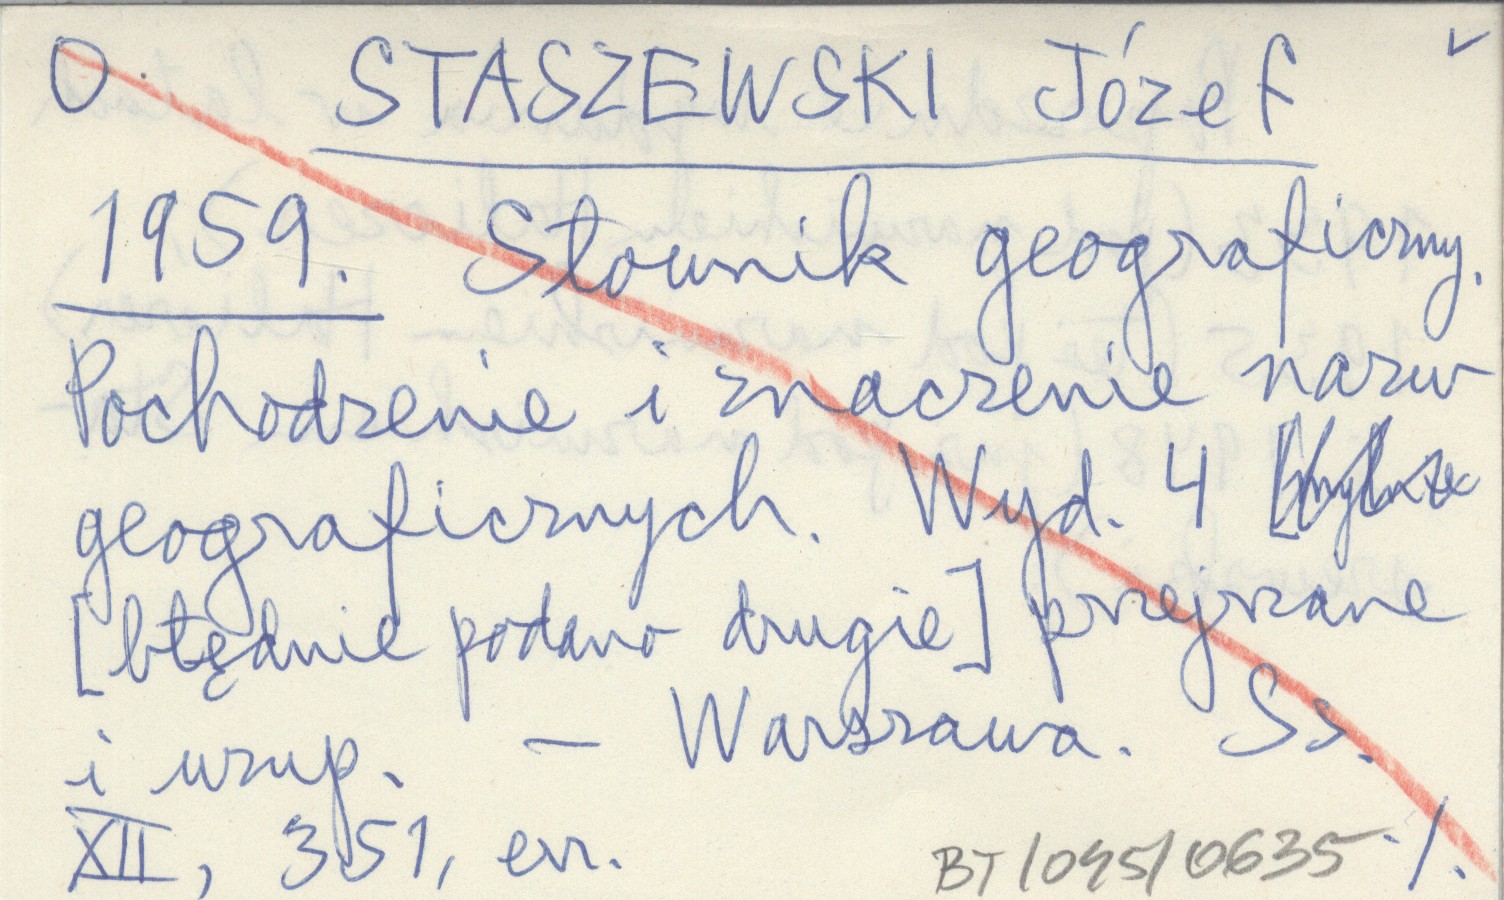 O. STASZEWSKI Józef
1959. Słownik geograficzny.
Pochodzenie i znaczenie nazw
geograficznych. Wyd. 4
[błędnie podano drugie] przejrzane
i uzup. — Warszawa. Ss.
XII, 351, err. ./.
BT/095/0635